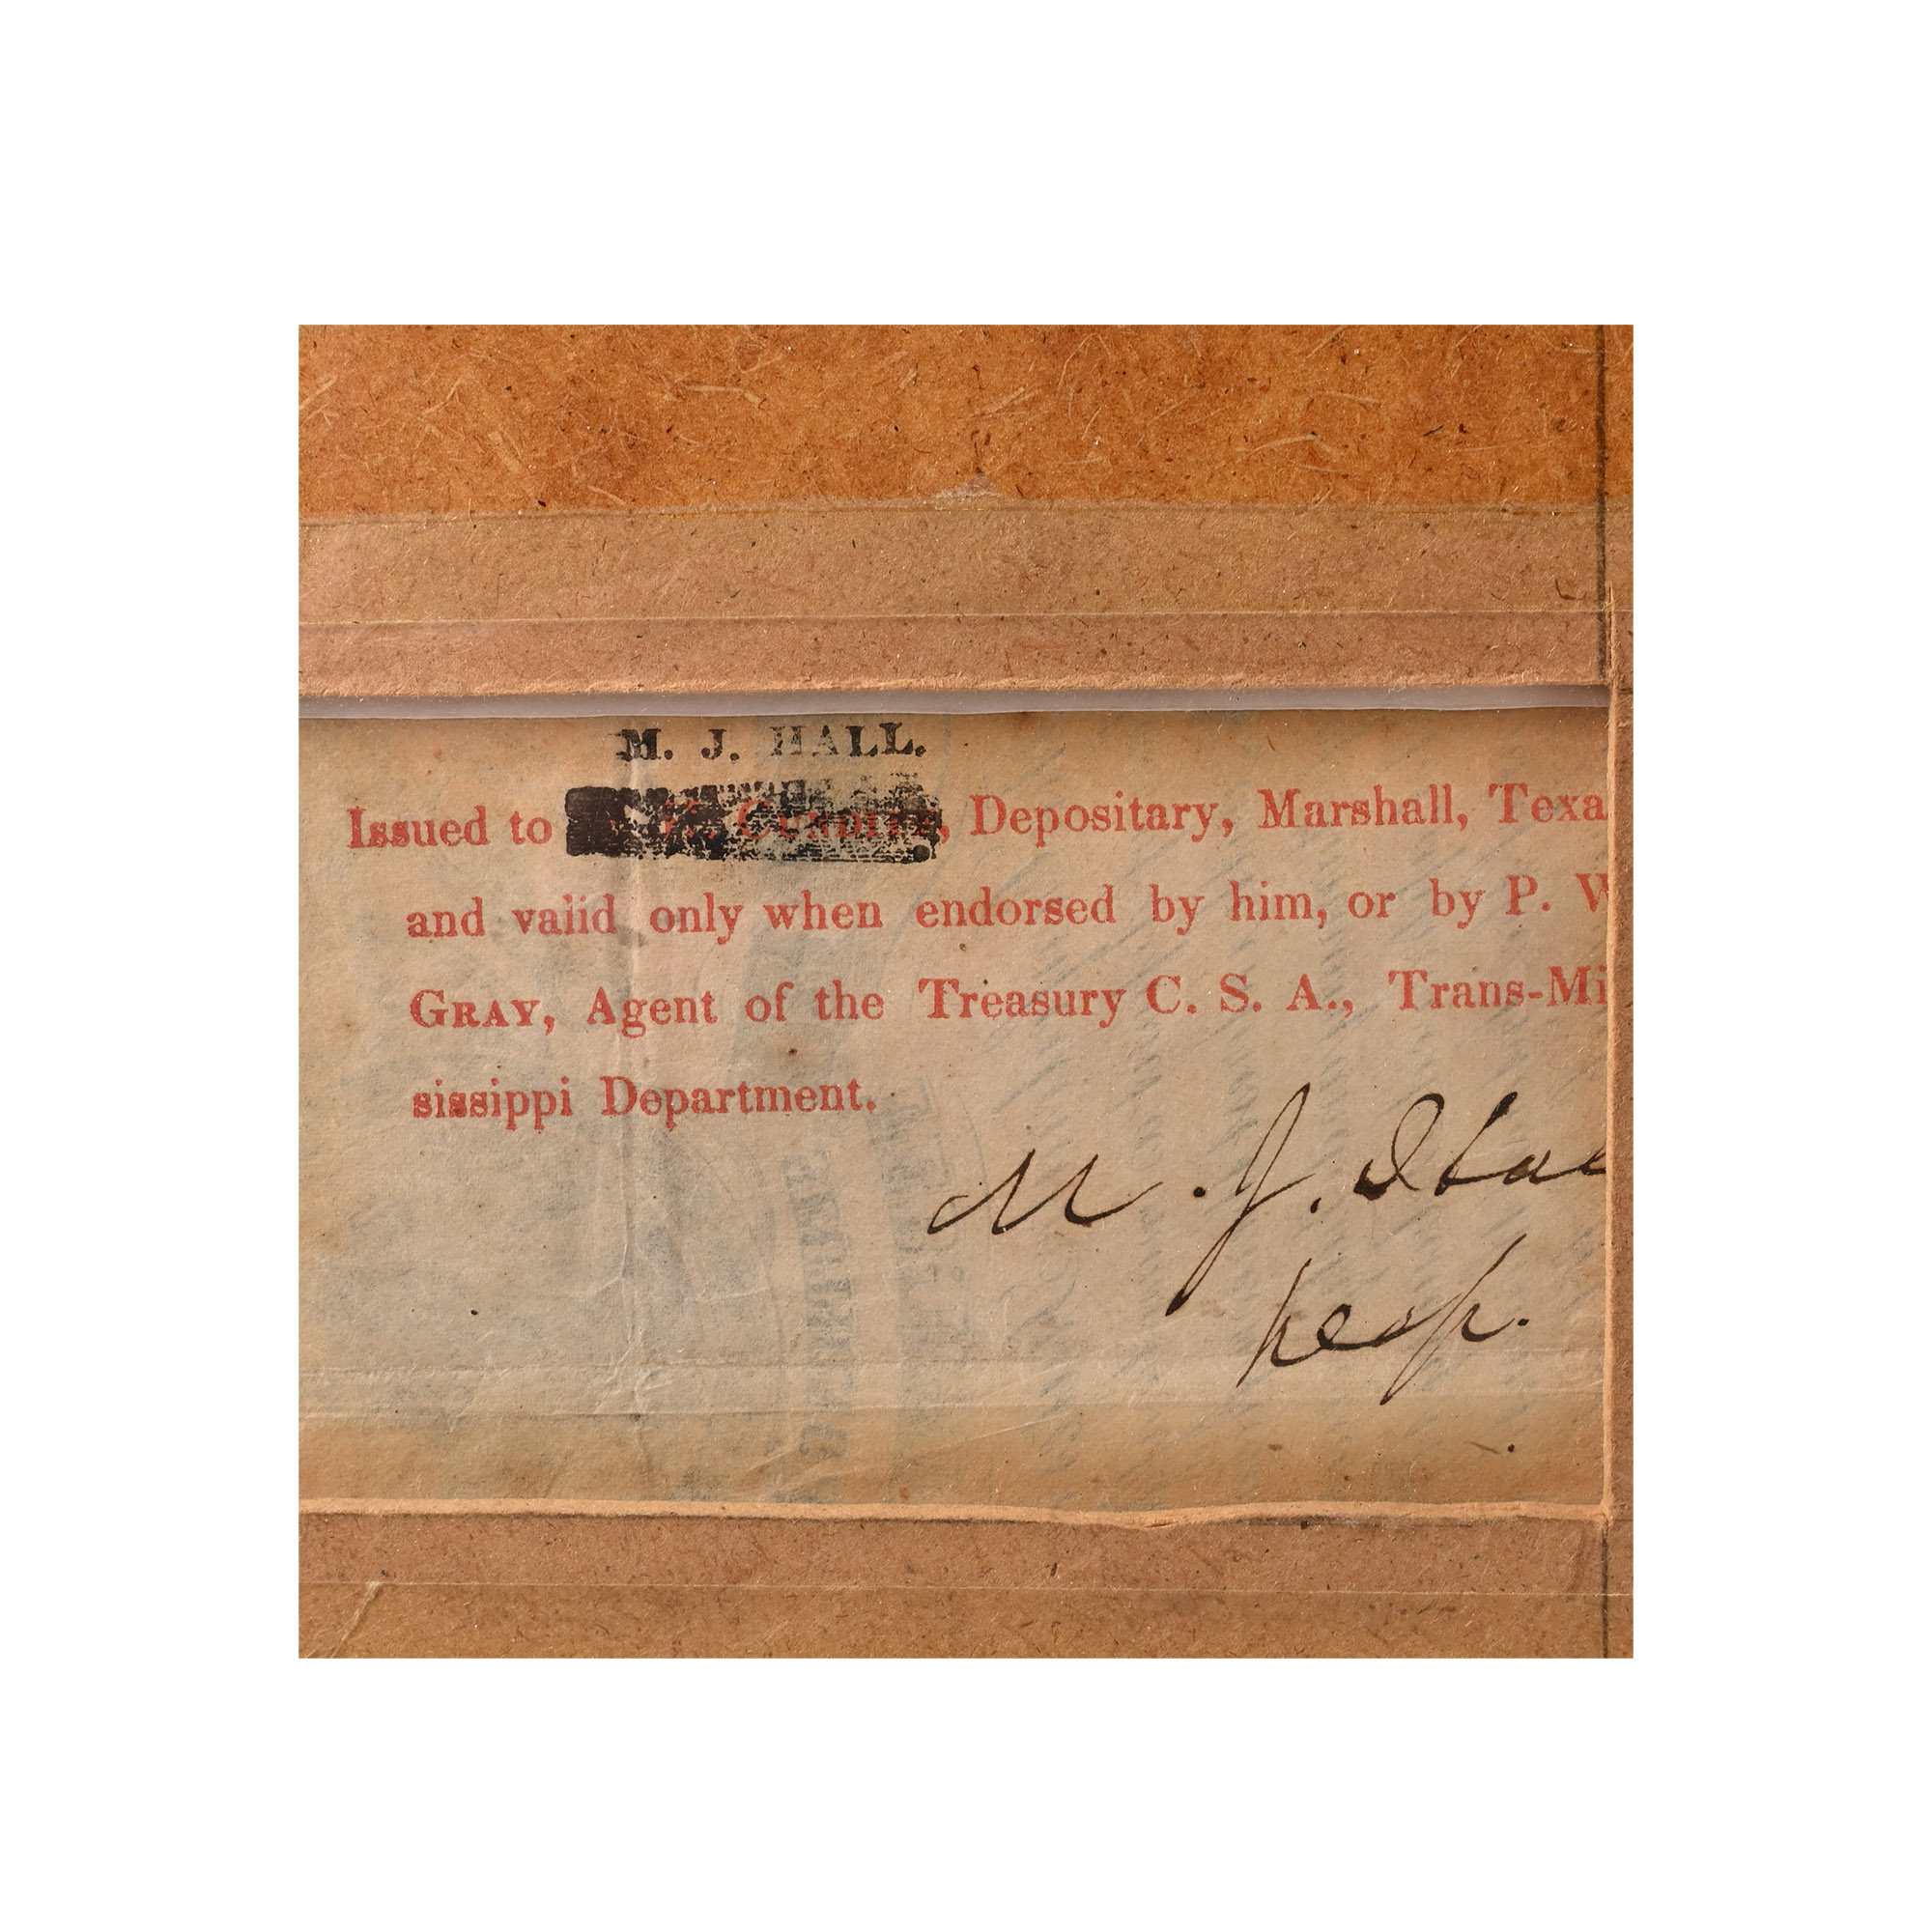 M. J. HALL.
Issued to , Depositary, Marshall, Texa
and valid only when endorsed by him, or by P. W
GRAY, Agent of the Treasury C. S. A., Trans-Mi
sissippi Department.
M. J. Hal